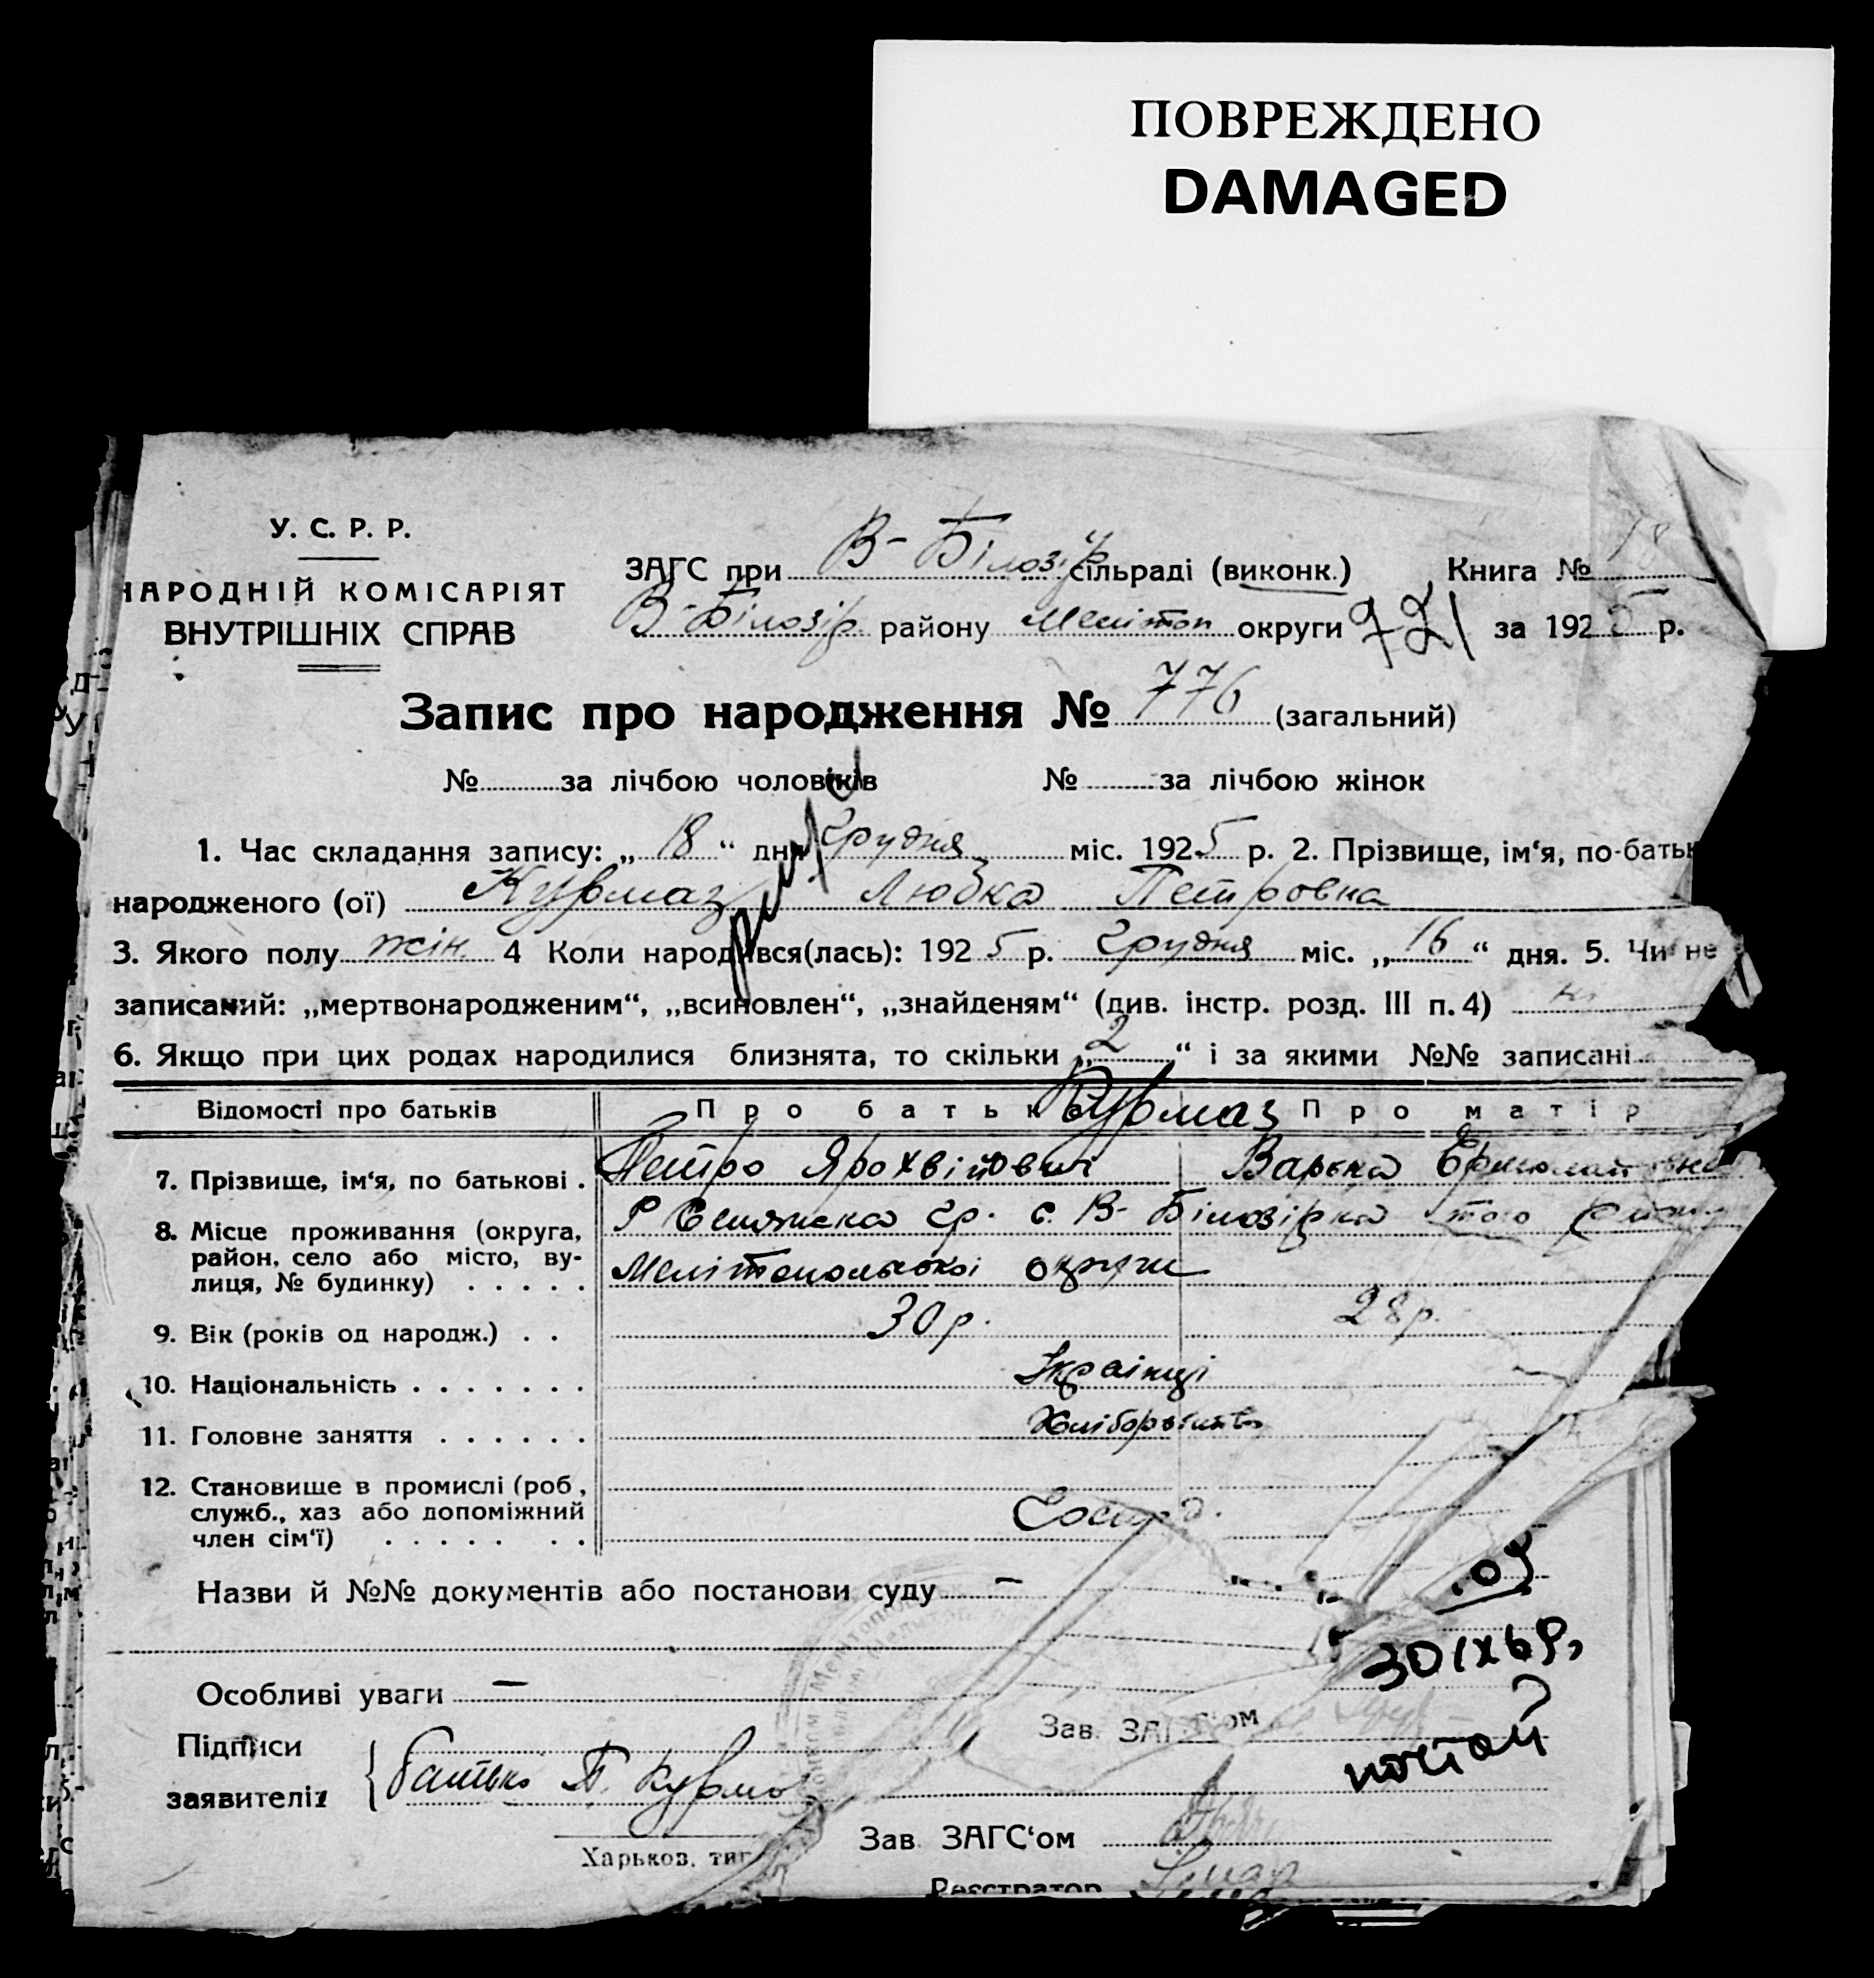 ПОВРЕЖДЕНО
DAMAGED
У. С. Р. Р.
НАРОДНІЙ КОМІСАРІЯТ
ВНУТРІШНІХ СПРАВ
ЗАГС при В- Білозір сільраді (виконк.) Книга № 18
В-Білозір. району Мелітоп округи 721 за 1925 р.
Запис про народження № 776 (загальний)
№ за лічбою чоловіків № за лічбою жінок
1. Час складання запису: „ 18 “ дня Грудня міс. 1925 р. 2. Прізвище, ім‘я, по-батьк
народженого (ої) Курмаз Любка Петровна
3. Якого полу жін. 4 Коли народився(лась): 1925 р. Грудня міс. „ 16 “ дня. 5. Чи не
записаний: „мертвонародженим“, „всиновлен“, „знайденям“ (див. інстр. розд. III п. 4)
6. Якщо при цих родах народилися близнята, то скільки „ 2 “ і за якими №№ записані
Відомості про батьків Про батька Курмаз Про матір
7. Прізвище, ім‘я, по батькові . Петро Варька
8. Місце проживання (округа, район, село або місто, ву- гр. с. В- Білозірка того
лиця, № будинку) . . . . . Мелітопольської округи
9. Вік (років од народж.) . . 30 р. 28 р.
10. Національність . . . . . . . Українці
11. Головне заняття . . . . . .
12. Становище в промислі (роб, служб., хаз або допоміжний
член сім‘ї) . . . . . . . Господ.
Назви й №№ документів або постанови суду —
Особливі уваги —
30 IX 69,
Підписи Зав. ЗАГС‘ом
заявителів { батько П. Курмаз
Зав ЗАГС‘ом
Харьков, тип
Реєстратор